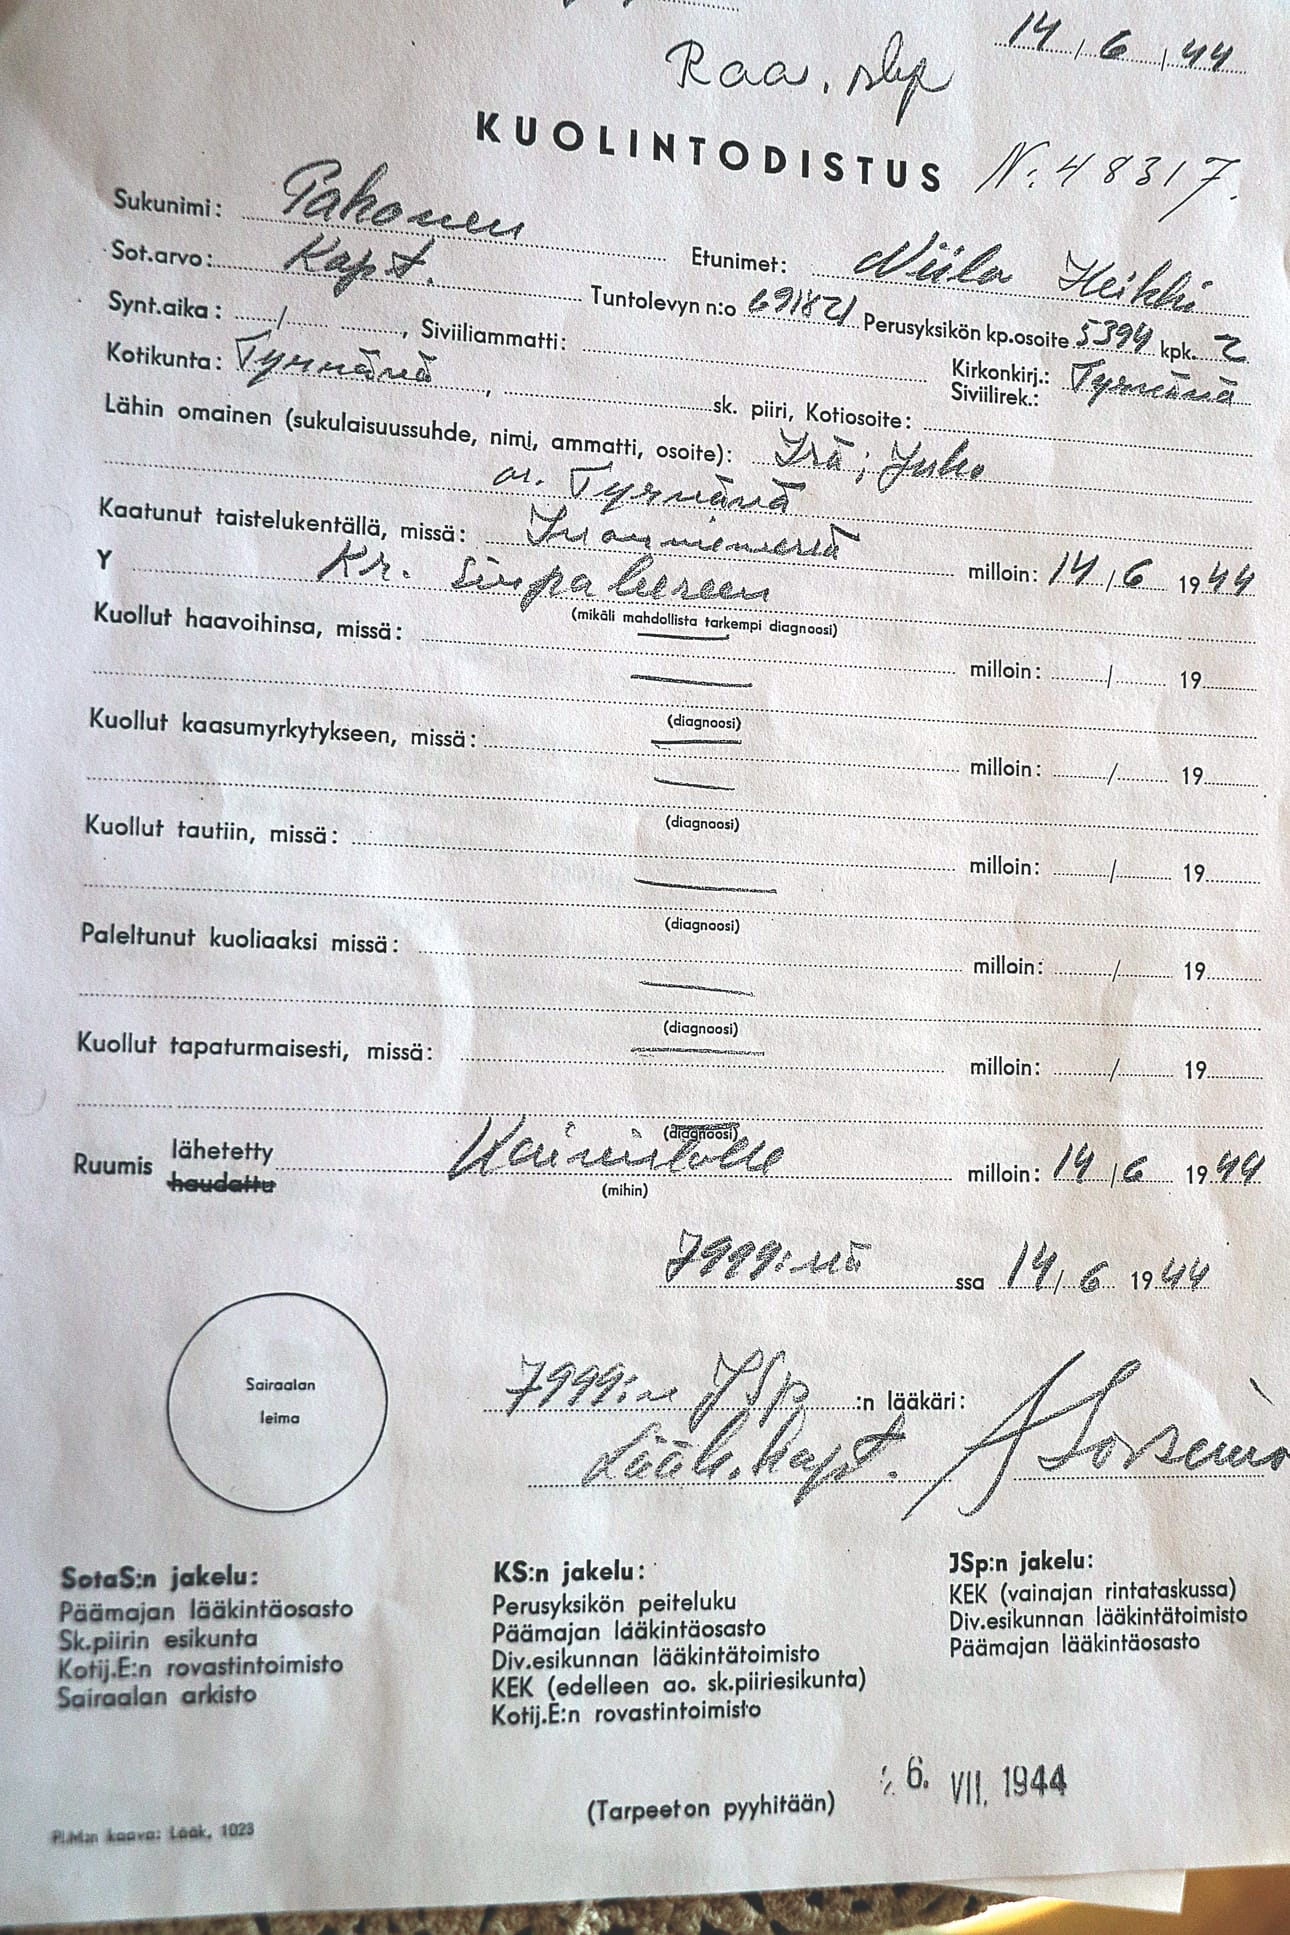 14 / 6 / 44
Raa. skp
KUOLINTODISTUS N: 48317.
Sukunimi: Pahonen Etunimet: Niilo Heikki
Sot.arvo: Kapt. Tuntolevyn n:o 691821 Perusyksikön kp.osoite 5394 kpk. 2
Synt.aika: / , Siviiliammatti: Kirkonkirj.: Tyrnävä
Siviilirek.:
Kotikunta: Tyrnävä , sk. piiri, Kotiosoite:
Lähin omainen (sukulaisuussuhde, nimi, ammatti, osoite): Isä; Juho
os. Tyrnävä
Kaatunut taistelukentällä, missä: milloin: 14 / 6 1944
Y Kr. sirpaleeseen
(mikäli mahdollista tarkempi diagnoosi)
Kuollut haavoihinsa, missä: milloin: / 19
(diagnoosi)
Kuollut kaasumyrkytykseen, missä: milloin: / 19
(diagnoosi)
Kuollut tautiin, missä: milloin: / 19
(diagnoosi)
Paleltunut kuoliaaksi missä: milloin: / 19
(diagnoosi)
Kuollut tapaturmaisesti, missä: milloin: / 19
(diagnoosi)
Ruumis lähetetty Kaivistolle milloin: 14 / 6 1944
haudattu
(mihin)
7999:nä ssa 14 / 6 1944
Sairaalan
leima
7999:n JSp :n lääkäri:
Lääk.kapt.
SotaS:n jakelu:
Päämajan lääkintäosasto
Sk.piirin esikunta
Kotij.E:n rovastintoimisto
Sairaalan arkisto
KS:n jakelu:
Perusyksikön peiteluku
Päämajan lääkintäosasto
Div.esikunnan lääkintätoimisto
KEK (edelleen ao. sk.piiriesikunta)
Kotij.E:n rovastintoimisto
JSp:n jakelu:
KEK (vainajan rintataskussa)
Div.esikunnan lääkintätoimisto
Päämajan lääkintäosasto
6. VII. 1944
(Tarpeeton pyyhitään)
Pl.Man kaava: Lääk, 1023